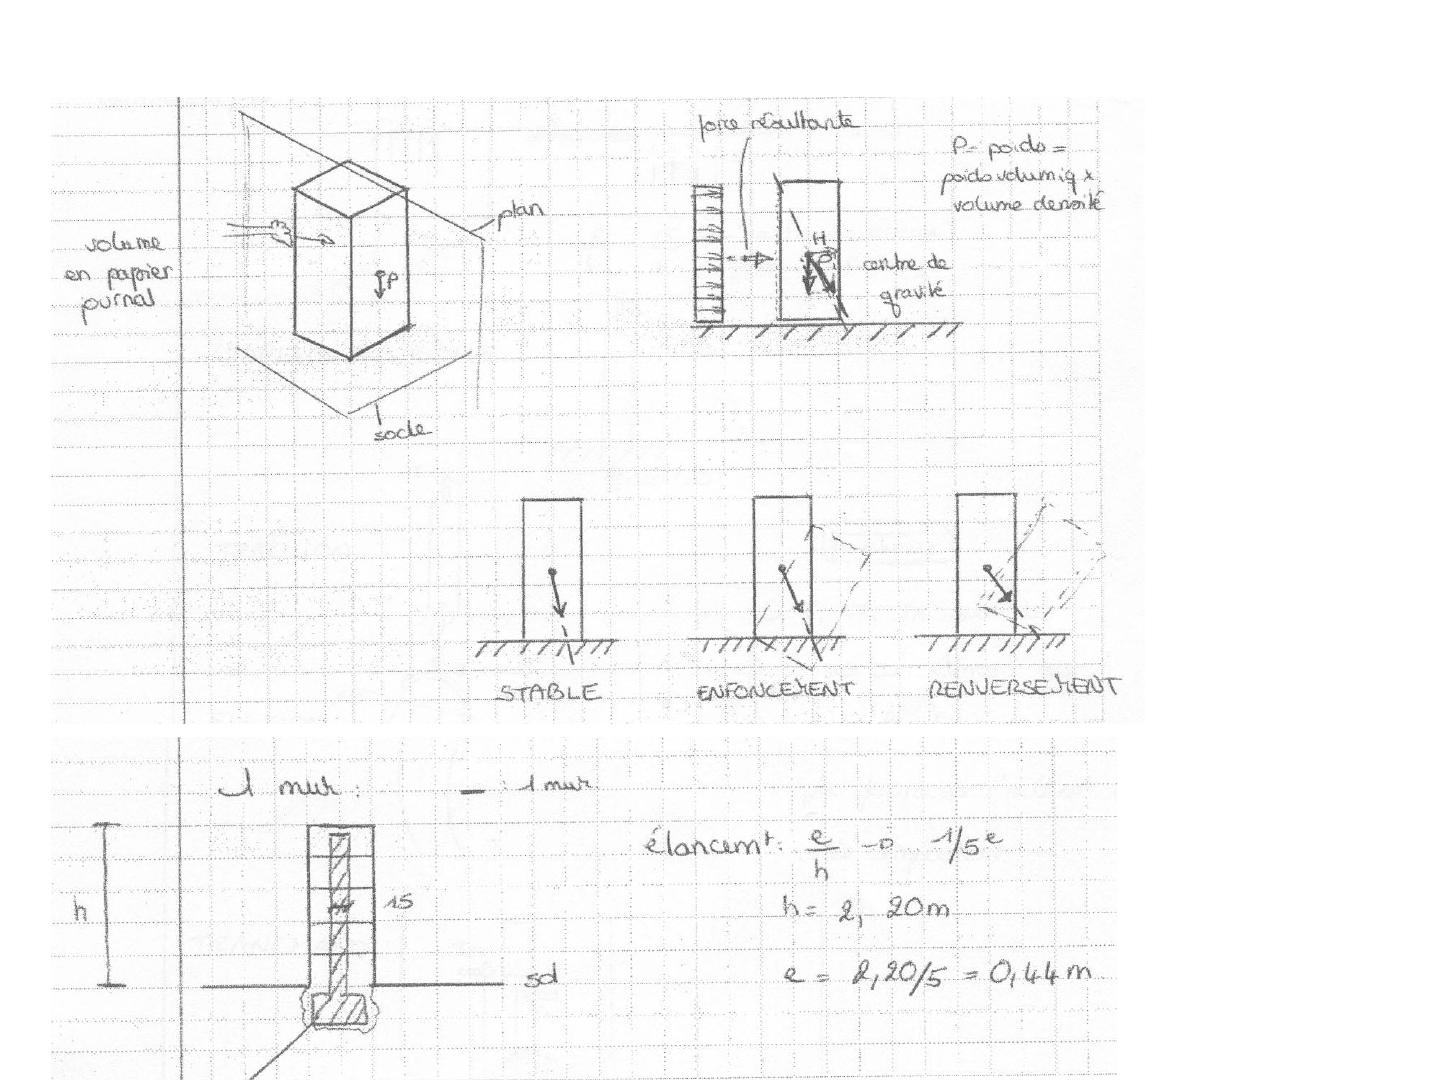 force résultante
P = poids =
poids volumiq x
volume densité
plan
volume
en papier
journal
P
H
P
centre de
gravité
socle
STABLE
ENFONCEMENT
RENVERSEMENT
1 mur :
- : 1 mur
élancemt : e/h → 1/5e
h
15
h = 2,20m
sol
e = 2,20/5 = 0,44 m